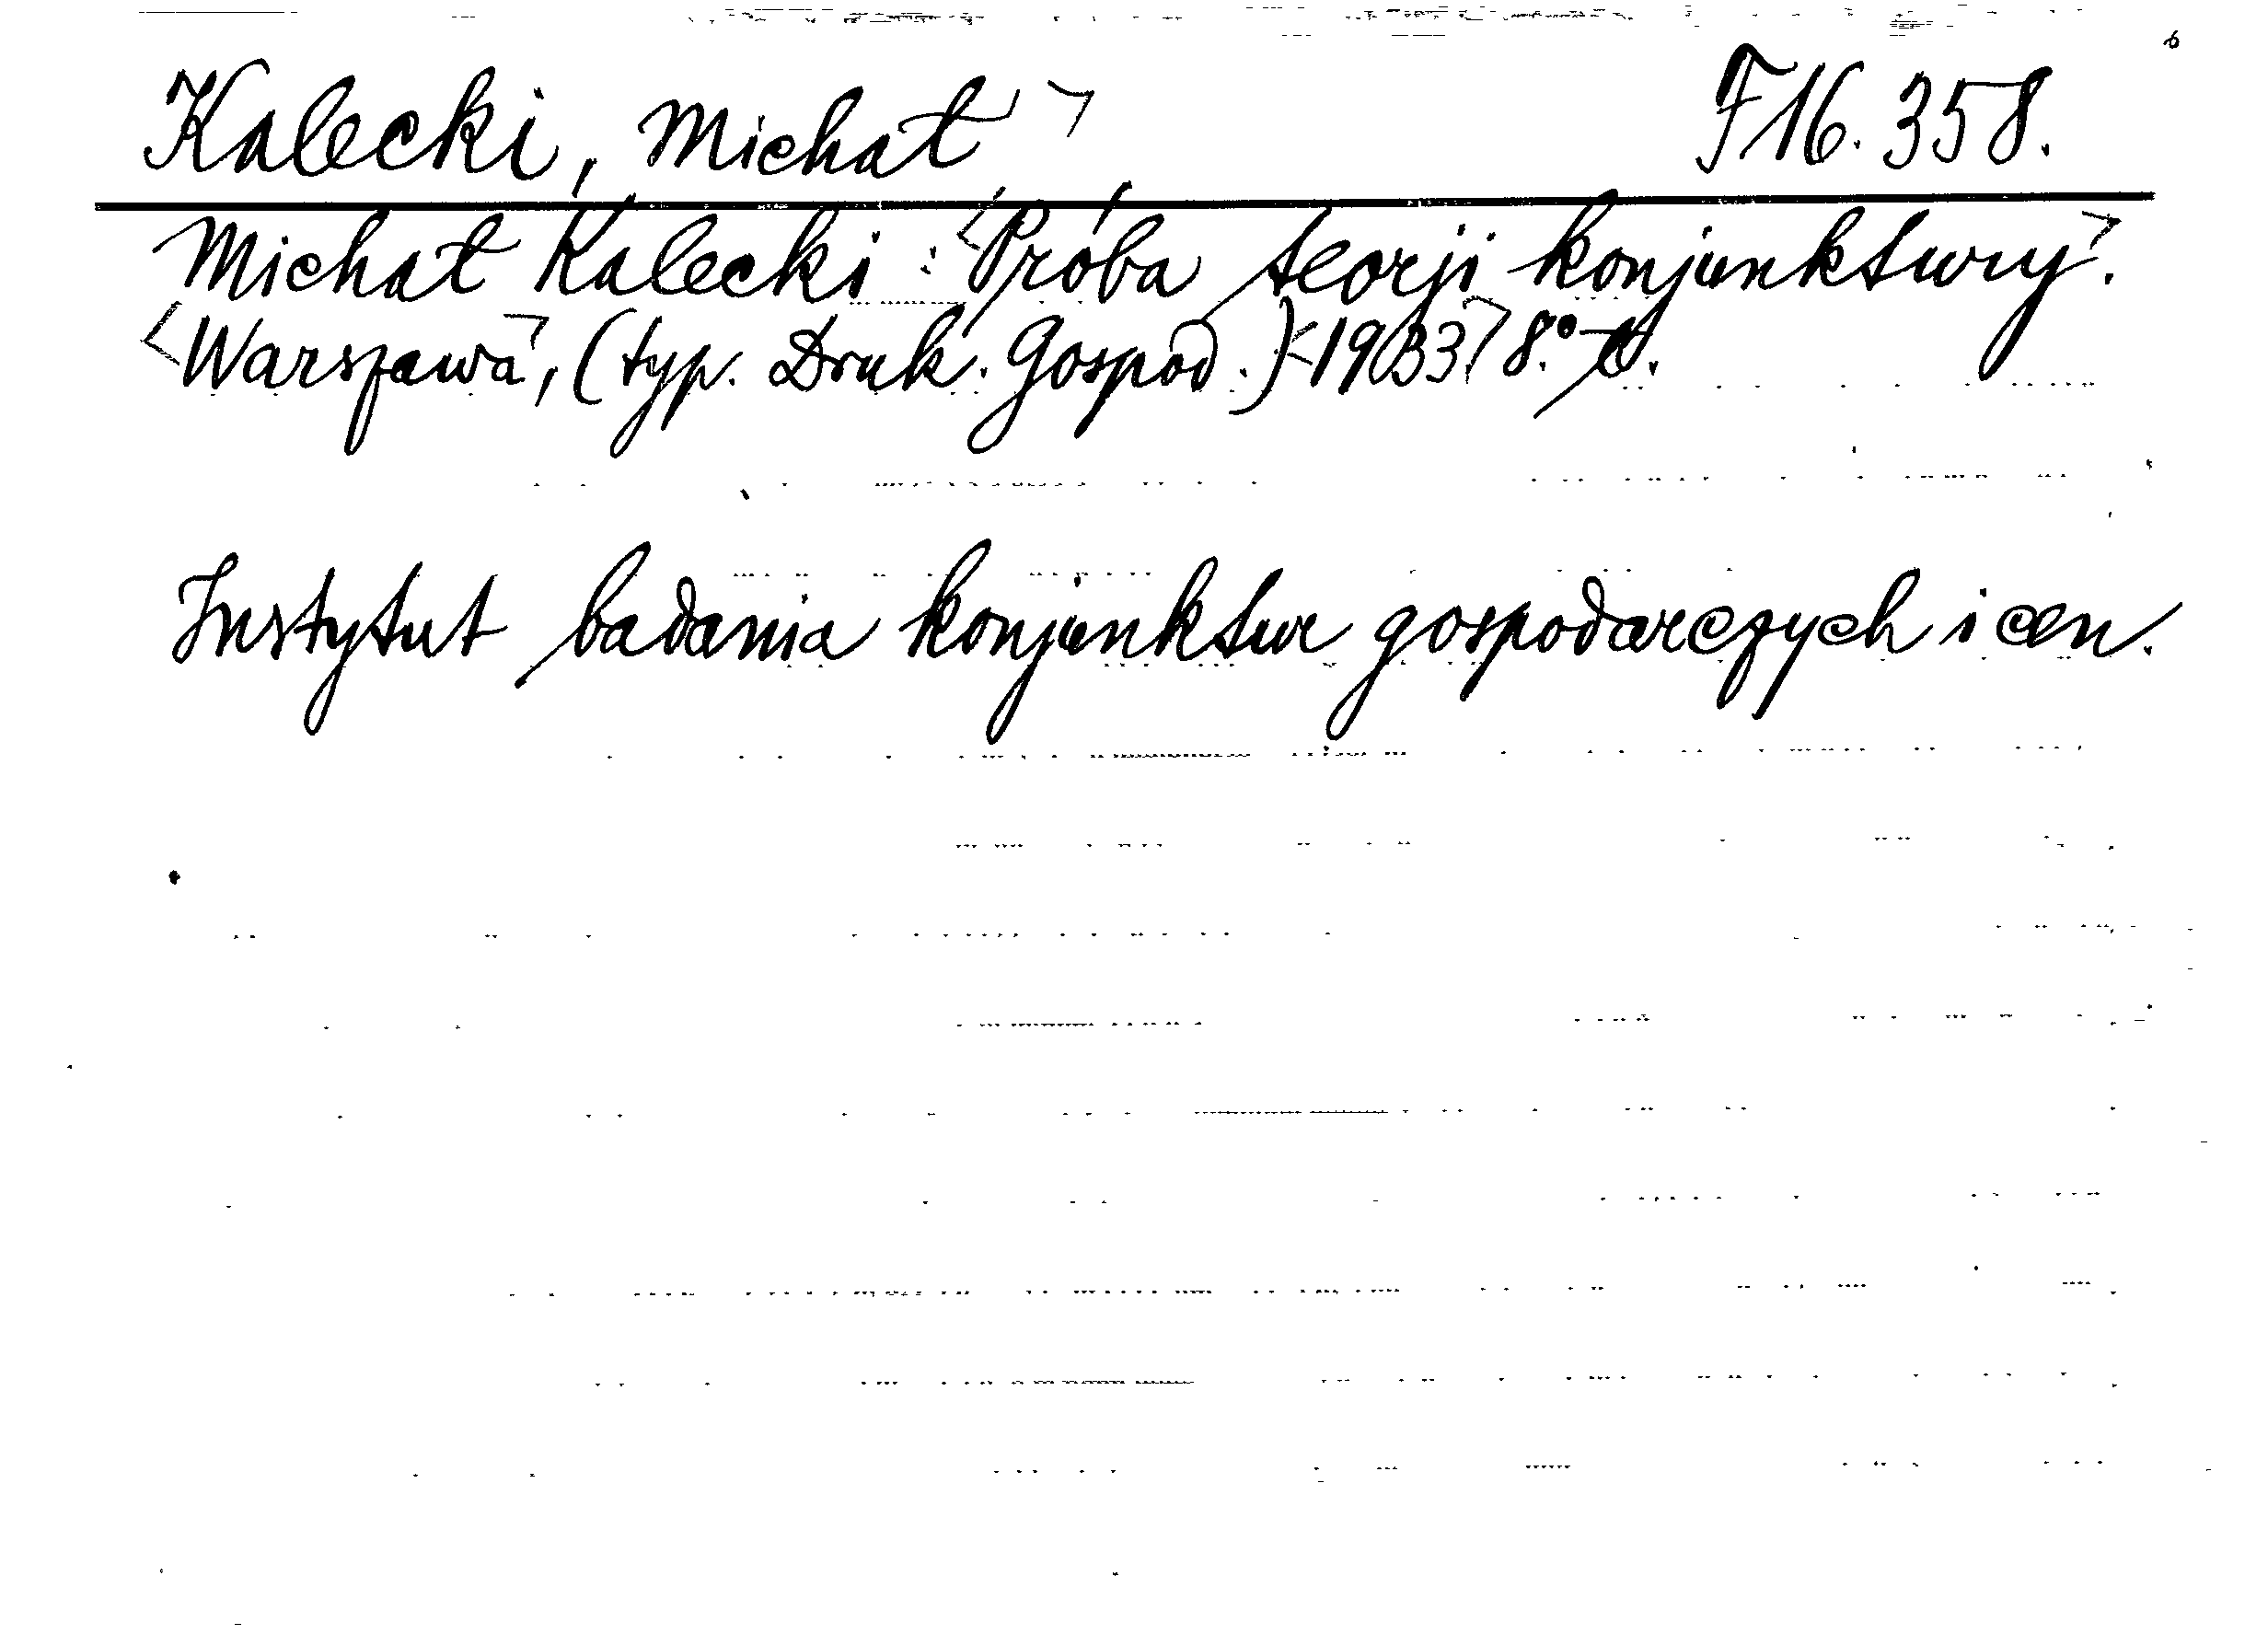 Kalecki, Michał F16.358.
Michał Kalecki: <Próba teorji konjunktury>.
<Warszawa>, (typ. Druk. Gospod.) <1933.> 8.°
Instytut badania konjunktur gospodarczych i cen.